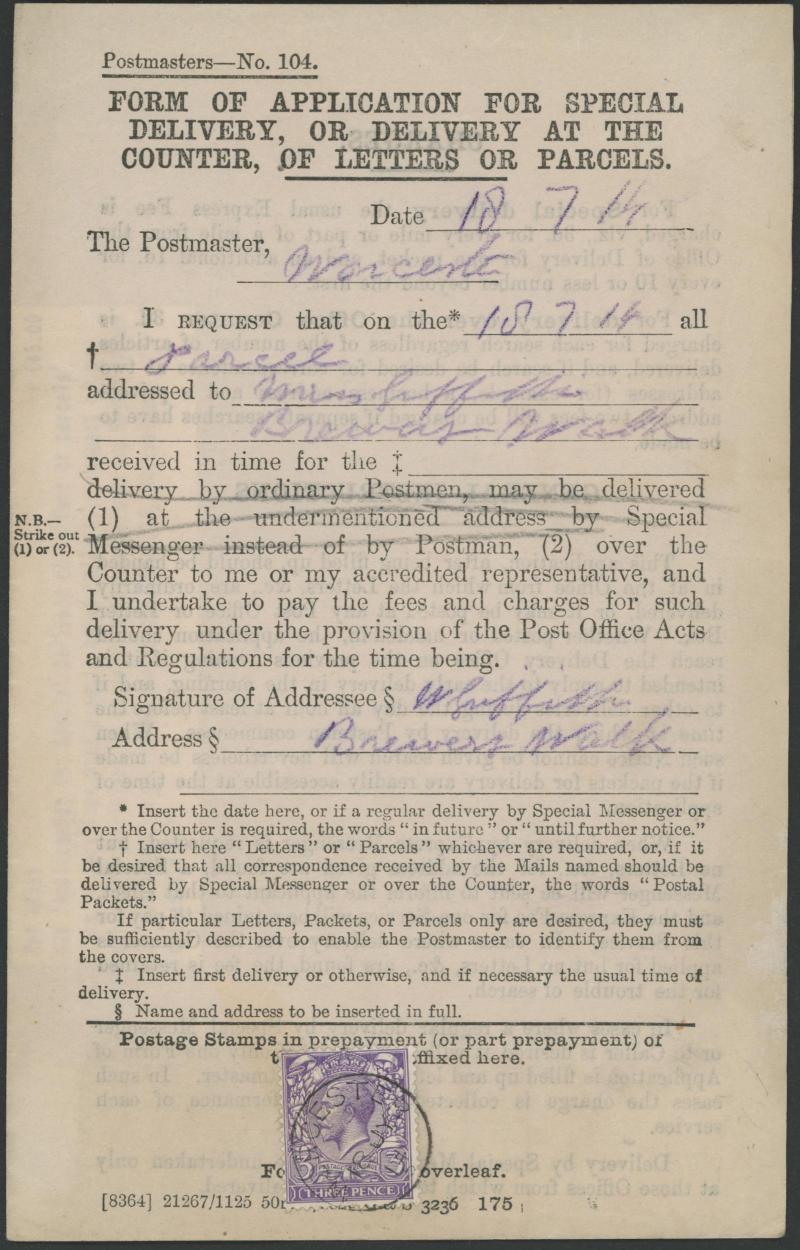 Postmasters—No. 104.
FORM OF APPLICATION FOR SPECIAL
DELIVERY, OR DELIVERY AT THE
COUNTER, OF LETTERS OR PARCELS.
Date 18 7 14
The Postmaster,
Worcester
I REQUEST that on the* 18 7 14 all
† Parcel
addressed to Miss Griffiths
Brewers Walk
received in time for the ‡
delivery by ordinary Postmen, may be delivered
N.B.— Strike out (1) or (2).
(1) at the undermentioned address by Special
Messenger instead of by Postman, (2) over the
Counter to me or my accredited representative, and
I undertake to pay the fees and charges for such
delivery under the provision of the Post Office Acts
and Regulations for the time being.
Signature of Addressee § W Griffiths
Address § Brewers Walk
* Insert the date here, or if a regular delivery by Special Messenger or
over the Counter is required, the words “ in future ” or “ until further notice.”
† Insert here “ Letters ” or “ Parcels ” whichever are required, or, if it
be desired that all correspondence received by the Mails named should be
delivered by Special Messenger or over the Counter, the words “ Postal
Packets.”
If particular Letters, Packets, or Parcels only are desired, they must
be sufficiently described to enable the Postmaster to identify them from
the covers.
‡ Insert first delivery or otherwise, and if necessary the usual time of
delivery.
§ Name and address to be inserted in full.
Postage Stamps in prepayment (or part prepayment) of
ffixed here.
THREE PENCE
overleaf.
[8364] 21267/1125 3236 175